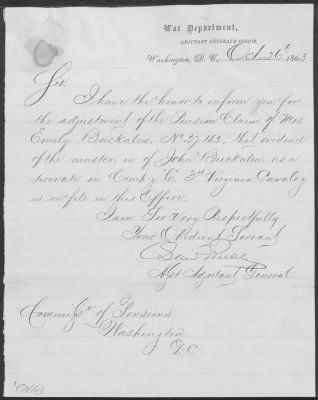 War Department,
ADJUTANT GENERAL'S OFFICE,
Washington, D. C., Oct. 26th, 1863
Sir.
I have the honor to inform you for
the adjustment of the Pension Claim of Mrs.
Emily Buckalew, No 27.162, that evidence
of the muster in of John Buckalew as a
private in Compy "C" 3d Virginia Cavalry
is on file in this Office.
I am Sir Very Respectfully
Your Obedient Servant
Asst Adjutant General
Commissr of Pensions
Washington
D.C.